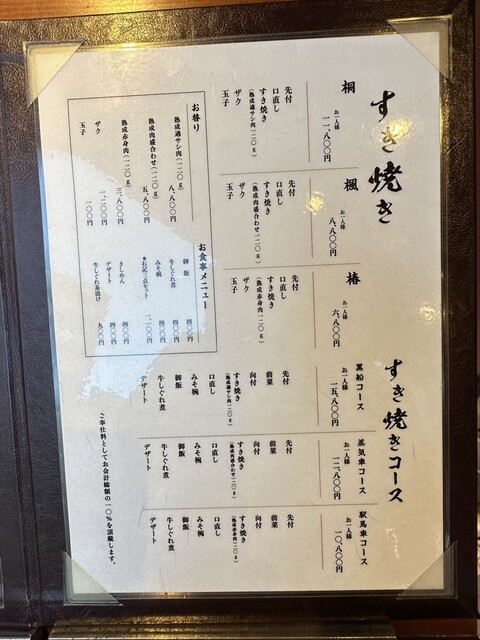 すき焼き
桐
お一人様
一一、八〇〇円
先付
口直し
すき焼き
(熟成過サシ肉一二〇g)
ザク
玉子
楓
お一人様
八、八〇〇円
先付
口直し
すき焼き
(熟成肉盛合わせ一二〇g)
ザク
玉子
椿
お一人様
六、八〇〇円
先付
口直し
すき焼き
(熟成赤身肉一二〇g)
ザク
玉子
お替り
熟成過サシ肉(一二〇g)
八、八〇〇円
熟成肉盛合わせ(一二〇g)
五、八〇〇円
熟成赤身肉(一二〇g)
三、八〇〇円
ザク
一、二〇〇円
玉子
一〇〇円
お食事メニュー
御飯
四〇〇円
牛しぐれ煮
四〇〇円
みそ椀
四〇〇円
●右記三点セット
一、〇〇〇円
きしめん
四〇〇円
デザート
四〇〇円
牛しぐれ茶漬け
九〇〇円
すき焼きコース
黒船コース
お一人様
一五、八〇〇円
先付
前菜
向付
すき焼き
(熟成過サシ肉一二〇g)
口直し
みそ椀
御飯
牛しぐれ煮
デザート
蒸気車コース
お一人様
一二、八〇〇円
先付
前菜
向付
すき焼き
(熟成肉盛合わせ一二〇g)
口直し
みそ椀
御飯
牛しぐれ煮
デザート
駅馬車コース
お一人様
一〇、八〇〇円
先付
前菜
向付
すき焼き
(熟成赤身肉一二〇g)
口直し
みそ椀
御飯
牛しぐれ煮
デザート
ご奉仕料としてお会計総額の一〇%を頂戴します。